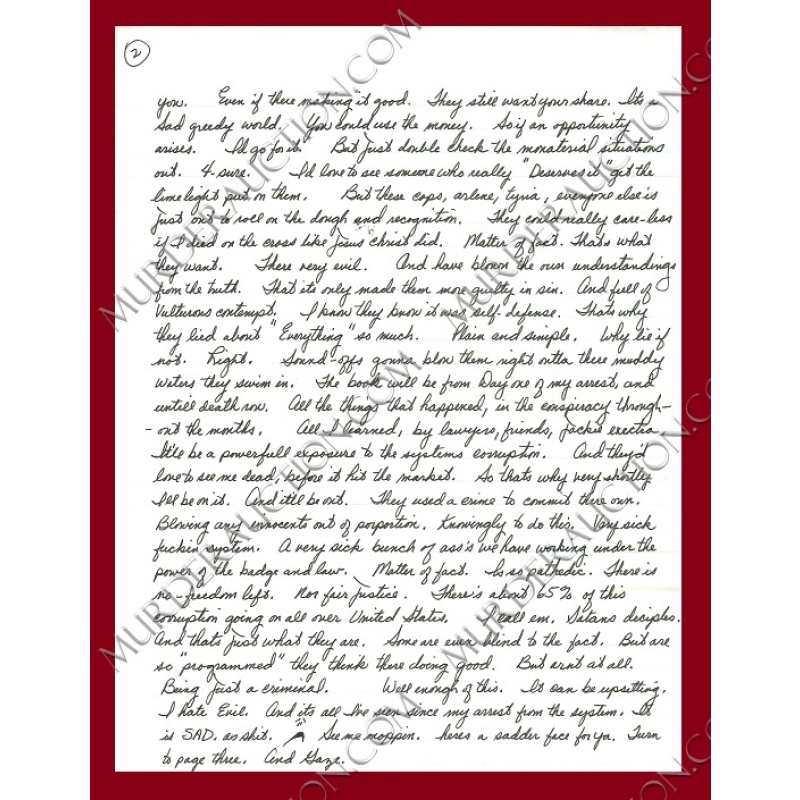 2
you. Even if there making it good. They still want your share. Its a
sad greedy world. You could use the money. So if an opportunity
arises. I'd go for it. But just double check the monaterial situations
out. 4-sure. I'd love to see someone who really "Deserves it" get the
lime light put on them. But these cops, arlene, tyria, everyone else is
just out to roll on the dough and recognition. They could really care-less
if I died on the cross like Jesus christ did. Matter of fact. Thats what
they want. There very evil. And have blown the own understandings
from the truth. That its only made them more guilty in sin. And full of
Vulturous contempt. I know they know it was self-defense. Thats why
they lied about "Everything" so much. Plain and simple. Why lie if
not. Right. Sound-offs gonna blow them right outta there muddy
waters they swim in. The book will be from Day one of my arrest, and
untill death row. All the things that happened, in the conspiracy through-
-out the months. All I learned, by lawyers, friends, Jackie exectra
It'll be a powerfull exposure to the systems corruption. And they'd
love to see me dead, before it hit the market. So thats why very shortly
I'll be on it. And it'll be out. They used a crime to commit there own.
Blowing any innocents out of porportion. Knowingly to do this. Very sick
fuckin system. A very sick bunch of ass's we have working under the
power of the badge and law. Matter of fact. Is so pathedic. There is
no-freedom left. Nor fair justice. There's about 65% of this
corruption going on all over United States. I call em. Satans deciples.
And thats just what they are. Some are even blind to the fact. But are
so "programmed" they think there doing good. But arnt at all.
Being just a criminal. Well enough of this. It can be upsetting.
I hate Evil. And its all I've seen since my arrest from the system. It
is SAD. as shit. See me moppin. heres a sadder face for ya. Turn
to page three. And Gaze.
MURDERAUCTION.COM